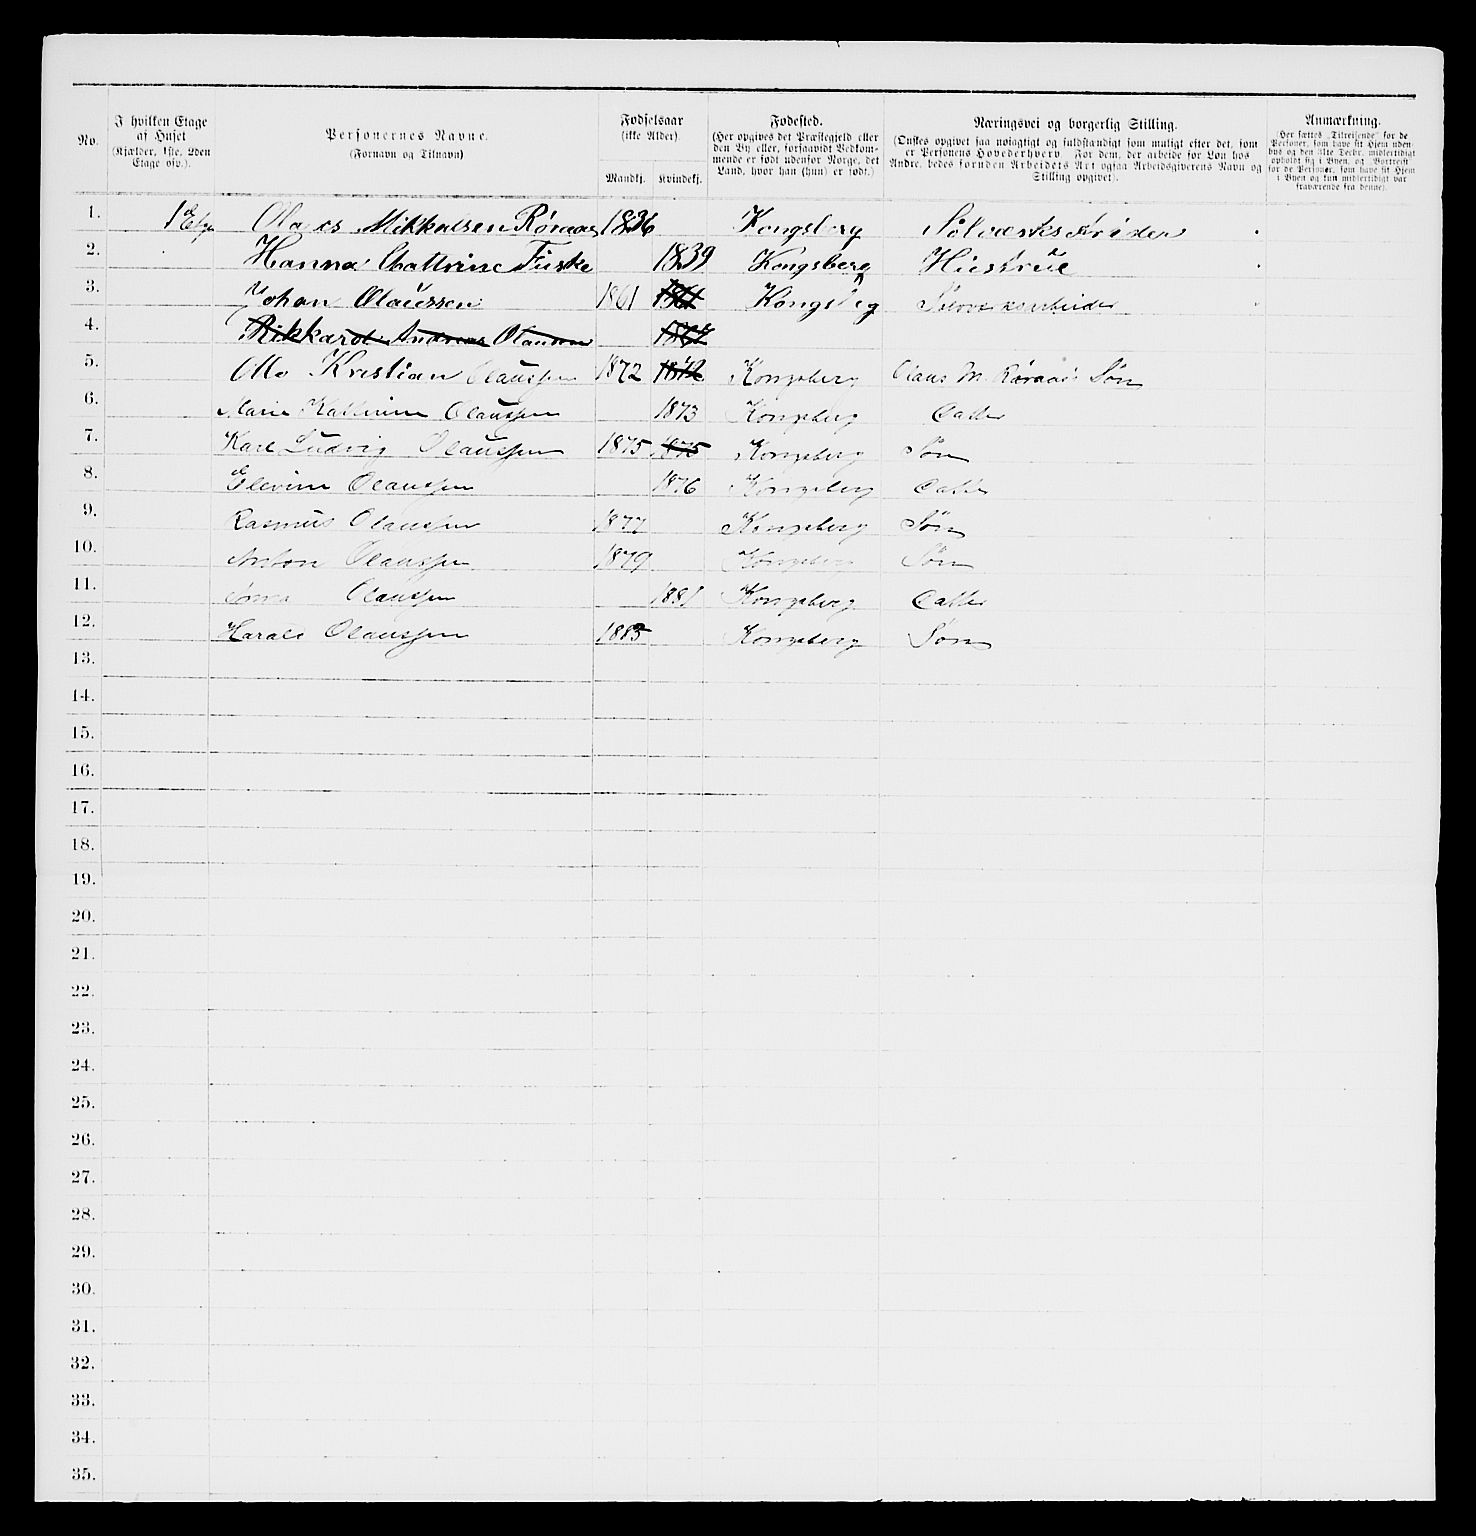 No.
I hvilken Etage af Huset (Kjælder, 1ste, 2den Etage osv.).
Personernes Navne. (Fornavn og Tilnavn)
Fødselsaar (ikke Alder). Mandkj. Kvindekj.
Fødested. (Her opgives det Præstegjeld eller den By eller, forsaavidt Vedkommende er født udenfor Norge, det Land, hvor han (hun) er født.)
Næringsvei og borgerlig Stilling. (Ønskes opgivet saa nøiagtigt og fuldstændigt som muligt efter det, som er Personens Hovederhverv. For dem, der arbeide for Løn hos Andre, bedes foruden Arbeidets Art ogsaa Arbeidsgiverens Navn og Stilling opgivet).
Anmærkning. (Her sættes „Tilreisende“ for de Personer, som have sit Hjem udenbys og den 31te Decbr. midlertidigt opholdt sig i Byen, og „Bortreist“ for de Personer, som have sit Hjem i Byen og kun midlertidigt var fraværende fra denne).
1. 1 Etge Olaus Mikkalsen Røraas 1836 Kongsberg Sølværksarbider
2. Hanna Cattrine Fuske 1839 Kongsberg Hustrue
3. Johan Olaussen 1861 1861 Kongsberg Sølvværksarbeider
4. Rikkard Andreas Olaussen
5. Otto Kristian Olaussen 1872 1872 Kongsberg Olaus M. Røraas Søn
6. Marie Kathrine Olaussen 1873 Kongsberg Datter
7. Karl Ludvig Olaussen 1875 1875 Kongsberg Søn
8. Elevine Olaussen 1876 Kongsberg Datter
9. Rasmus Olaussen 1877 Kongsberg Søn
10. Anton Olaussen 1879 Kongsberg Søn
11. Olaussen 1881 Kongsberg Datter
12. Harald Olaussen 1883 Kongsberg Søn
13.
14.
15.
16.
17.
18.
19.
20.
21.
22.
23.
24.
25.
26.
27.
28.
29.
30.
31.
32.
33.
34.
35.